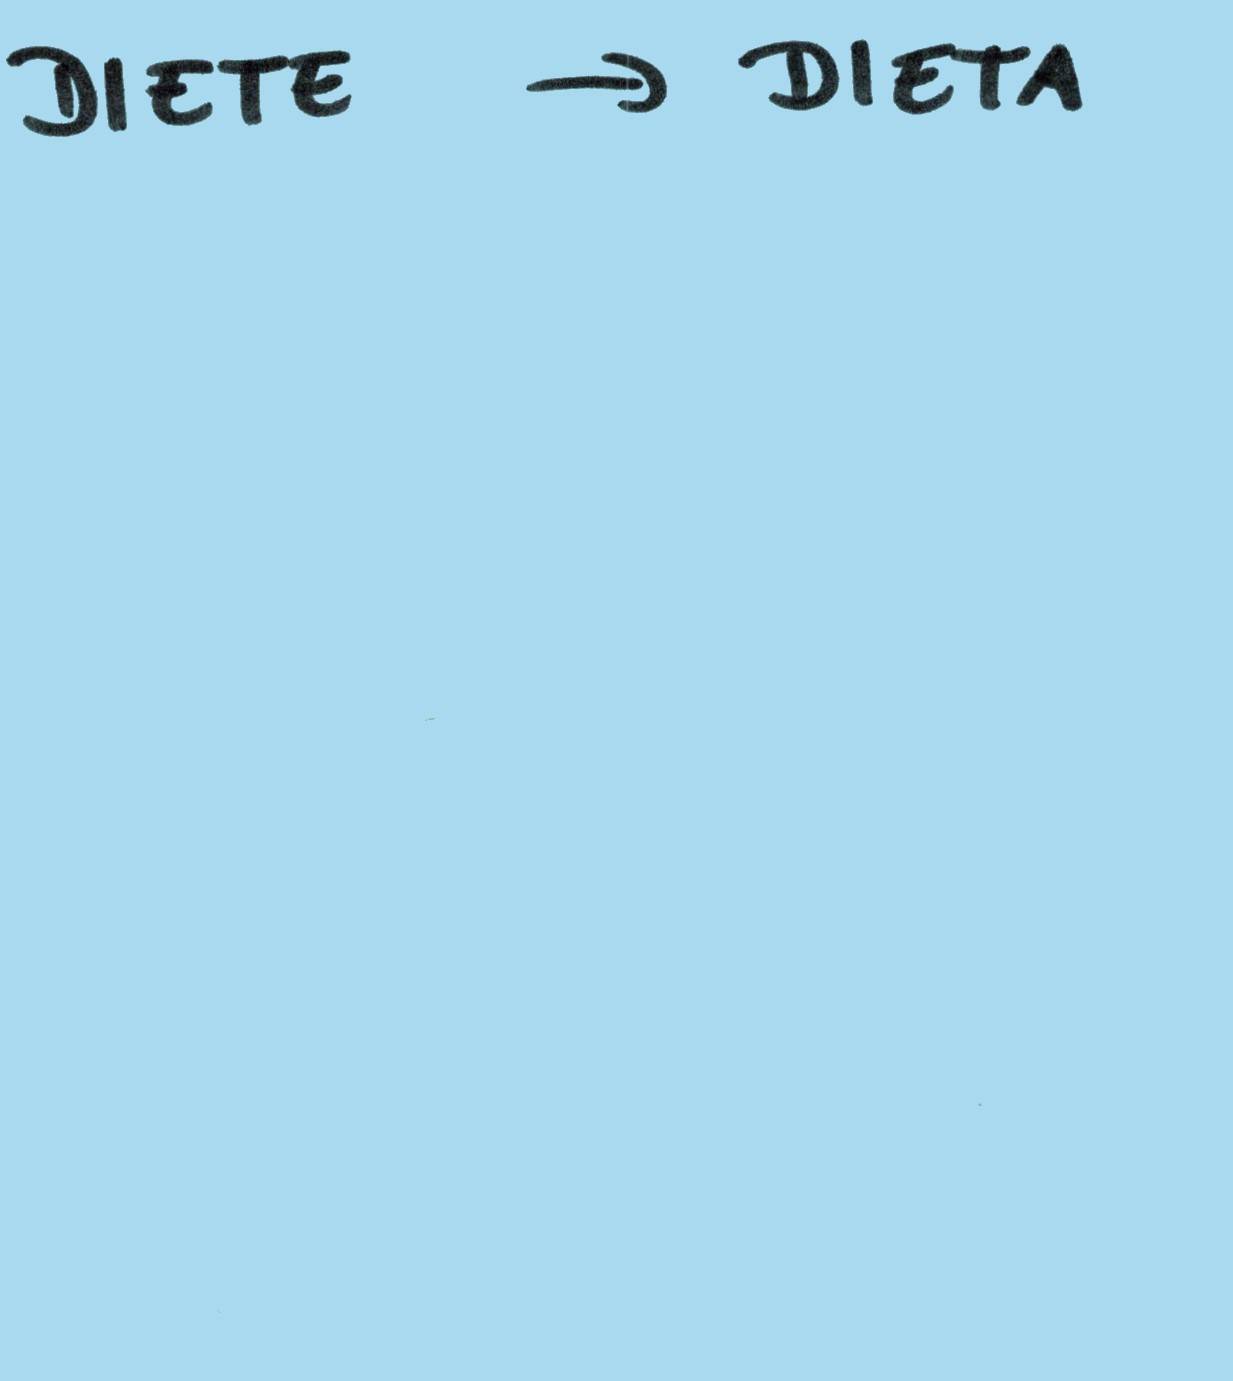 DIETE → DIETA